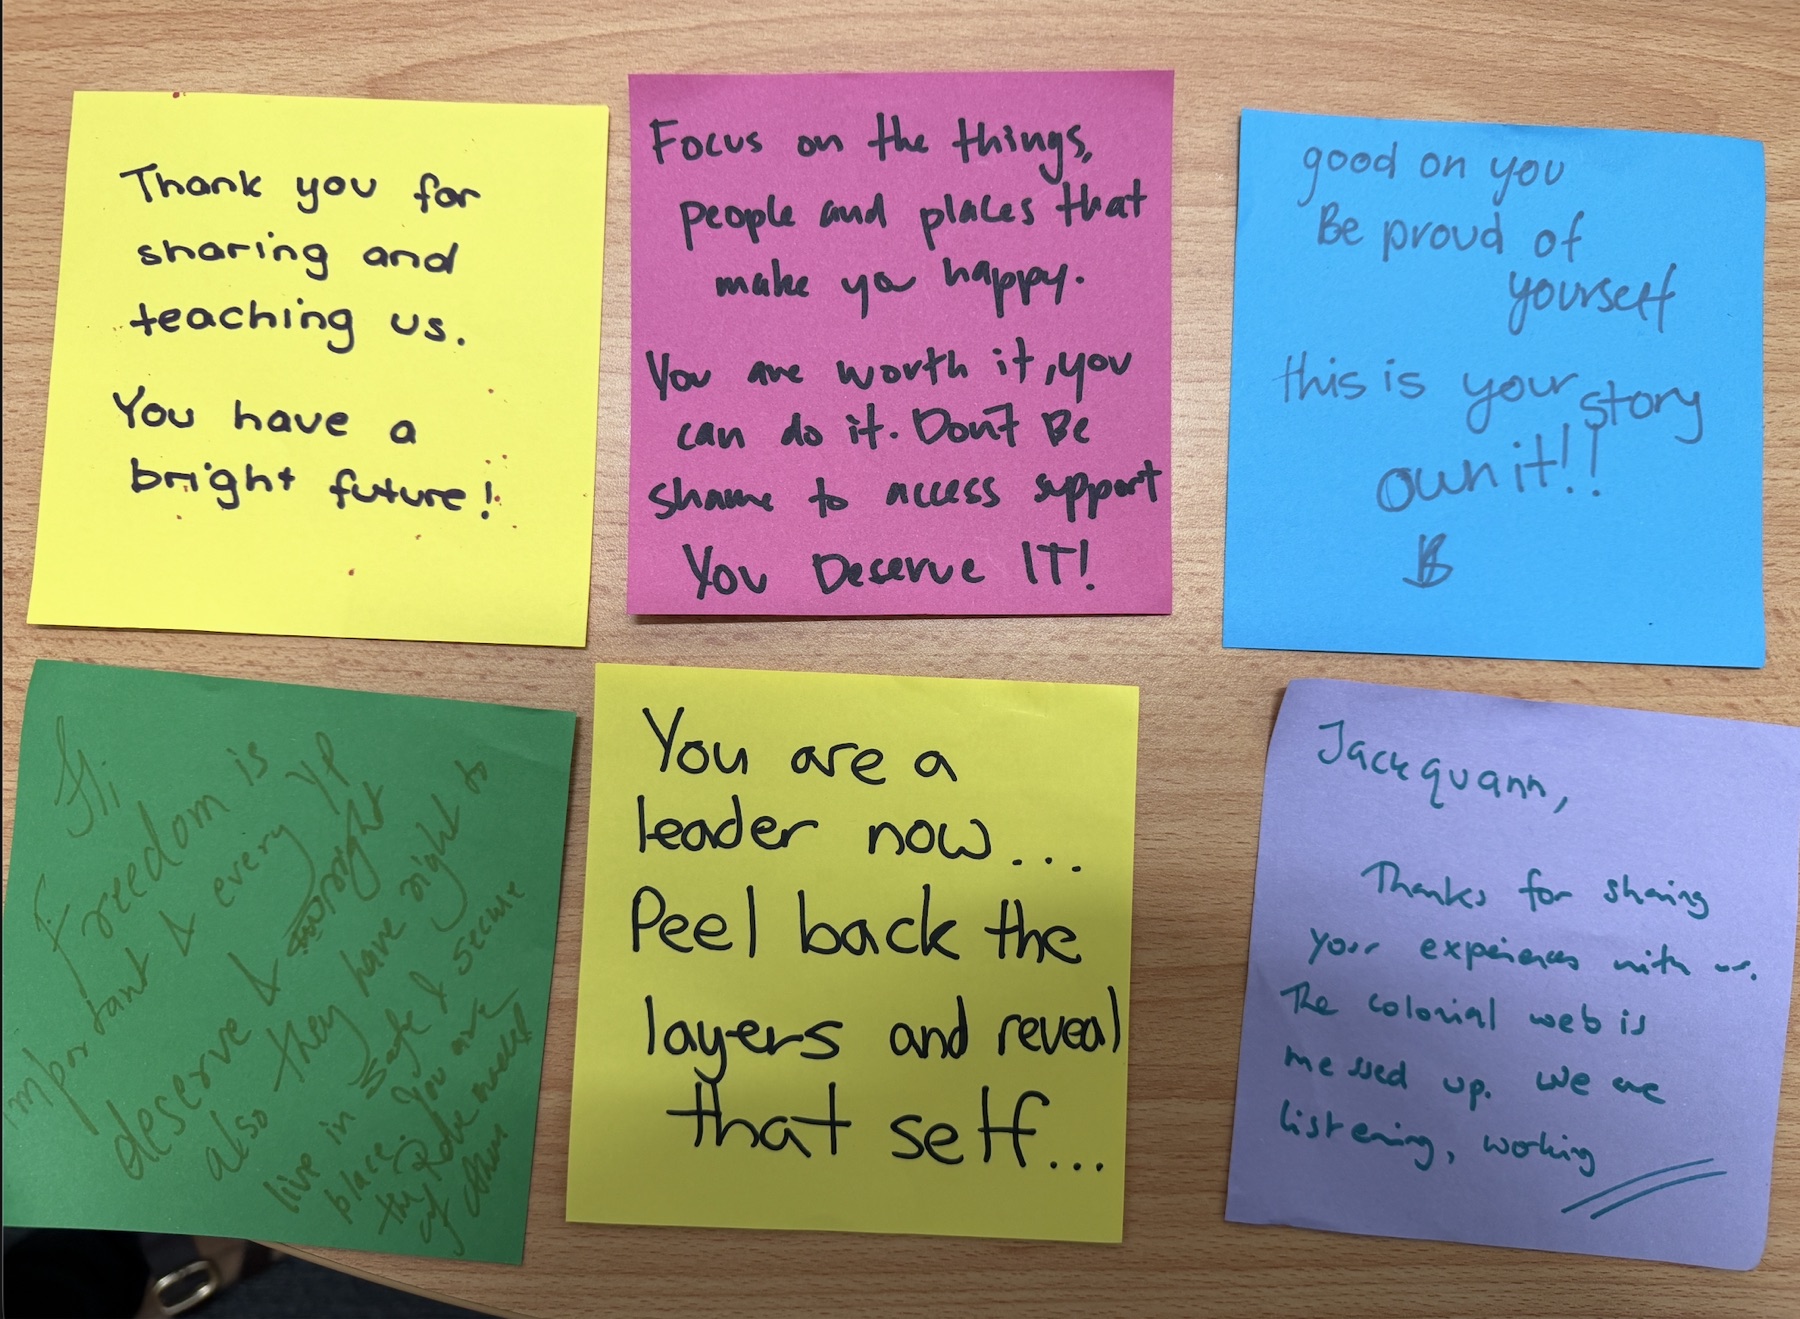 Thank you for
sharing and
teaching us.
You have a
bright future!
Focus on the things,
people and places that
make you happy.
You are worth it, you
can do it. Don't Be
shame to access support
You Deserve IT!
good on you
Be proud of
yourself
this is your story
own it!!
Hi
Freedom is
important & every YP
deserve & right
also they have right to
live in safe & secure
place. You are
the Role model
of
You are a
leader now...
Peel back the
layers and reveal
that self...
Jackquann,
Thanks for sharing
your experiences with us.
The colonial web is
messed up. We are
listening, working